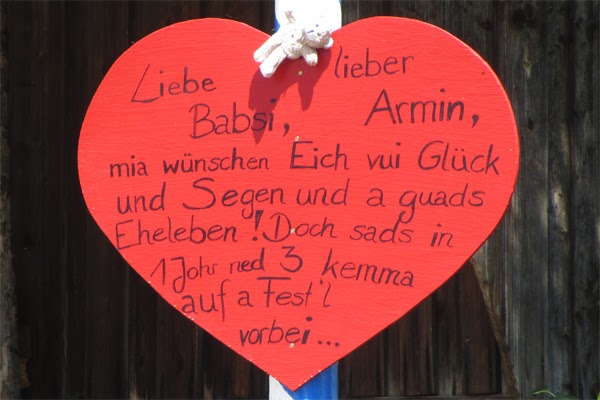 Liebe lieber
Babsi, Armin,
mia wünschen Eich vui Glück
und Segen und a guads
Eheleben! Doch sads in
1 Johr ned 3 kemma
auf a Fest'l
vorbei...